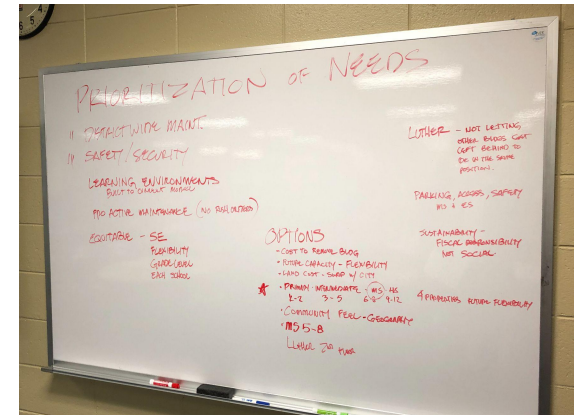 PRIORITIZATION OF NEEDS
11 DISTRICT WIDE MAINT.
14 SAFETY/SECURITY
LEARNING ENVIRONMENTS
BUILT TO CURRENT
ACTIVE MAINTENANCE (NO
EQUITABLE - SE
FLEXIBILITY
GRADE LEVEL
EACH SCHOOL
OPTIONS
- COST TO REMOVE BLDG
- FUTURE CAPACITY - FLEXIBILITY
- LAND COST - SWAP W/ CITY
- PRIMARY - INTERMEDIATE - MS HS
K-2 3-5 6-8 9-12
- COMMUNITY FEEL - GEOGRAPHY
- MS 5-8
LUTHER 2ND FLOOR
LUTHER - NOT LETTING
OTHER BLDGS GET
LEFT BEHIND TO
BE IN THE SAME
POSITION.
PARKING, ACCESS, SAFETY
& ES
SUSTAINABILITY -
FISCAL RESPONSIBILITY
NOT SOCIAL
4 PROPERTIES FUTURE FLEXIBILITY